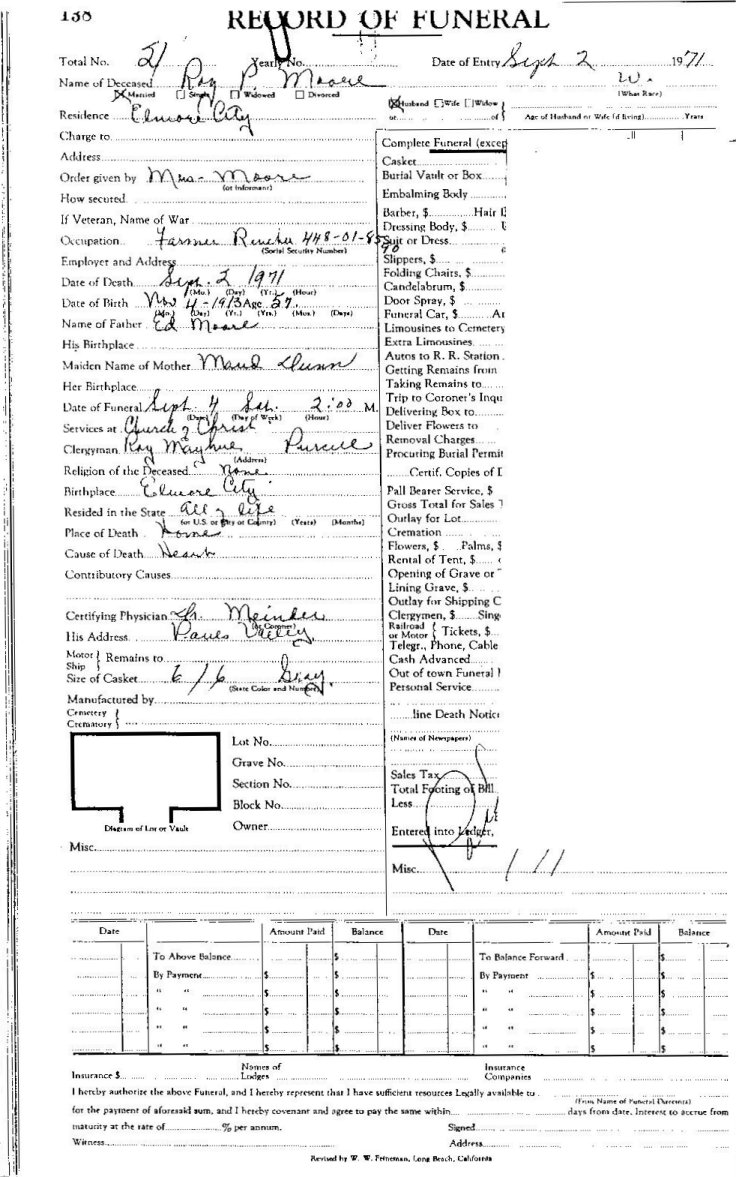 138
RECORD OF FUNERAL
Total No. 21 Yearly No. Date of Entry Sept 2 1971
Name of Deceased Roy P. Moore W.
Married Single Widowed Divorced (What Race)
Husband Wife Widow
or of Age of Husband or Wife (if living) Years
Residence Elmore City
Charge to
Address
Order given by Mrs- Moore
(or Informant)
How secured
If Veteran, Name of War
Occupation Farmer Rancher 448-01-8590
(Social Security Number)
Employer and Address
Date of Death Sept. 2 1971
(Mo.) (Day) (Yr.) (Hour)
Date of Birth Nov 4-1913 Age 57
(Mo.) (Day) (Yr.) (Yrs.) (Mos.) (Days)
Name of Father Ed Moore
His Birthplace
Maiden Name of Mother Maud Dunn
Her Birthplace
Date of Funeral Sept. 4 Sat. 2:00 M.
(Date) (Day of Week) (Hour)
Services at Church of Christ
Clergyman Roy Mayhue Purcell
(Address)
Religion of the Deceased None
Birthplace Elmore City
Resided in the State all of life
for U.S. or City or County) (Years) (Months)
Place of Death Home
Cause of Death Heart
Contributory Causes
Certifying Physician Dr. Meinder
(or Coroner)
His Address Pauls Valley
Motor Ship } Remains to
Size of Casket 6/6 Gray
(State Color and Number)
Manufactured by
Cemetery
Crematory
Lot No.
Grave No.
Section No.
Block No.
Owner
Diagram of Lot or Vault
Misc.
Complete Funeral (excep
Casket
Burial Vault or Box
Embalming Body
Barber, $ Hair D
Dressing Body, $ U
Suit or Dress
Slippers, $
Folding Chairs, $
Candelabrum, $
Door Spray, $
Funeral Car, $ Ar
Limousines to Cemetery
Extra Limousines
Autos to R. R. Station
Getting Remains from
Taking Remains to
Trip to Coroner's Inqu
Delivering Box to
Deliver Flowers to
Removal Charges
Procuring Burial Permit
Certif. Copies of D
Pall Bearer Service, $
Gross Total for Sales T
Outlay for Lot
Cremation
Flowers, $ Palms, $
Rental of Tent, $
Opening of Grave or
Lining Grave, $
Outlay for Shipping C
Clergymen, $ Sing
Railroad or Motor { Tickets, $
Telegr., Phone, Cable
Cash Advanced
Out of town Funeral
Personal Service
line Death Notic
(Names of Newspapers)
Sales Tax
Total Footing of Bill
Less
Entered into Ledger,
Misc.
Date Amount Paid Balance Date Amount Paid Balance
To Above Balance $ To Balance Forward $
By Payment $ $ By Payment $ $
" " $ $ " " $ $
" " $ $ " " $ $
" " $ $ " " $ $
" " $ $ " " $ $
Insurance $ Names of Lodges Insurance Companies
I hereby authorize the above Funeral, and I hereby represent that I have sufficient resources Legally available to
(Firm Name of Funeral Directors)
for the payment of aforesaid sum, and I hereby covenant and agree to pay the same within days from date. Interest to accrue from
maturity at the rate of % per annum. Signed
Witness Address
Revised by W. W. Feineman, Long Beach, California